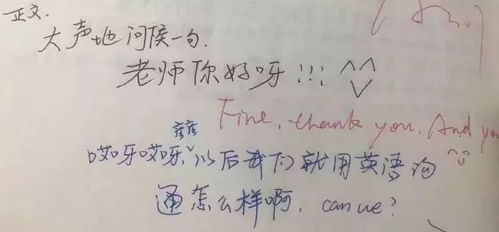 正文.
大声地问候一句.
老师你好呀!!! ^^
Fine, thank you. And you
哎呀哎呀,以后我们就用英语沟
通怎么样啊, can we?